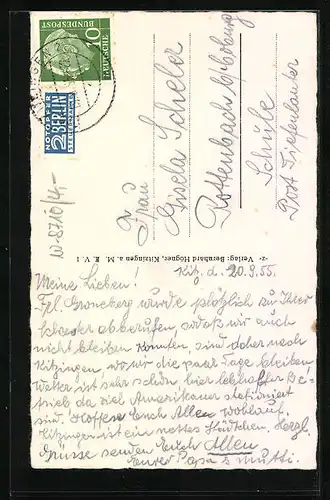 DEUTSCHE
BUNDESPOST
10
NOTOPFER
2 BERLIN
STEUERMARKE
Frau
Gisela Scheler
Rottenbach b/
Schule
Post Tiefenlauter
-z- Verlag: Bernhard Högner, Kitzingen a. M. E. V. 1
Kitz., d. 20.9.55.
Meine Lieben!
Frl. Groneberg wurde plötzlich zu ihrer
abberufen, sodaß wir auch
nicht bleiben konnten, sind daher nach
Kitzingen, wo wir die paar Tage bleiben,
Wetter ist sehr schön, hier lebhafter Be-
trieb da viel Amerikaner stationiert
sind. Hoffen Euch Allen wohlauf.
Kitzingen ist ein nettes Städtchen. Herzl.
Grüsse senden Euch Allen
Eurer Papa & Mutti.